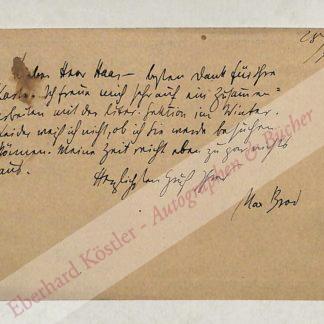 28/
Lieber Herr Haas – besten Dank für Ihre
Karte. Ich freue mich sehr auf ein Zusammen=
arbeiten mit der liter. Sektion im Winter.
Leider weiß ich nicht, ob ich Sie werde besuchen
können. Meine Zeit reicht eben zu gar nichts
aus.
Herzlichsten Gruß Ihres
Max Brod
Eberhard Köstler - Autographen & Bücher